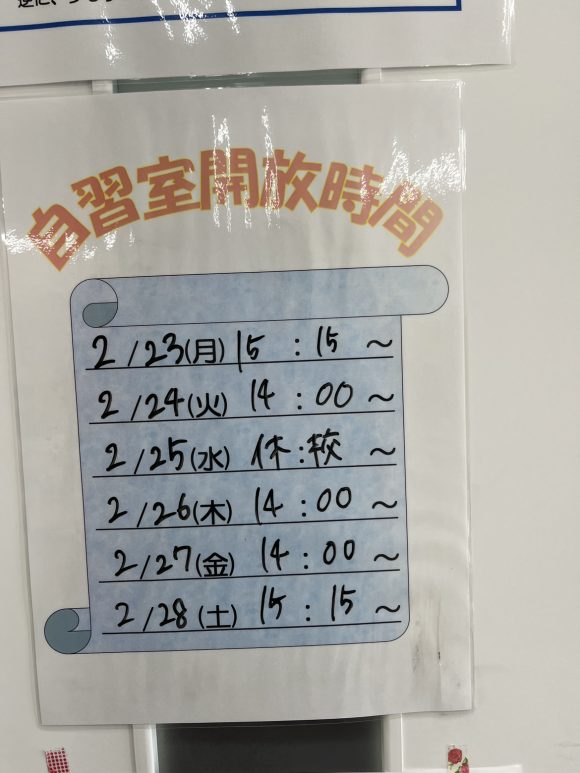 自習室開放時間
2/23(月) 15:15~
2/24(火) 14:00~
2/25(水) 休:校~
2/26(木) 14:00~
2/27(金) 14:00~
2/28(土) 15:15~